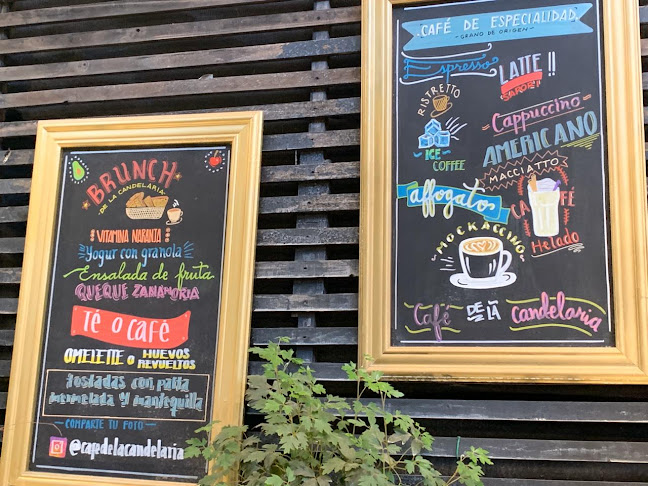 BRUNCH
DE LA CANDELARIA
VITAMINA NARANJA
Yogur con granola
Ensalada de fruta
QUEQUE ZANAHORIA
TÉ O CAFÉ
OMELETTE O HUEVOS REVUELTOS
TOSTADAS CON PALTA
MERMELADA Y MANTEQUILLA
COMPARTE TU FOTO
@cafedelacandelaria
CAFÉ DE ESPECIALIDAD
GRANO DE ORIGEN
Espresso
LATTE !!
SABORES
RISTRETTO
CAPPUCCINO
AMERICANO
ICE COFFEE
MACCIATTO
affogato
CAFÉ
Helado
MOCKACCINO
Café DE LA Candelaria